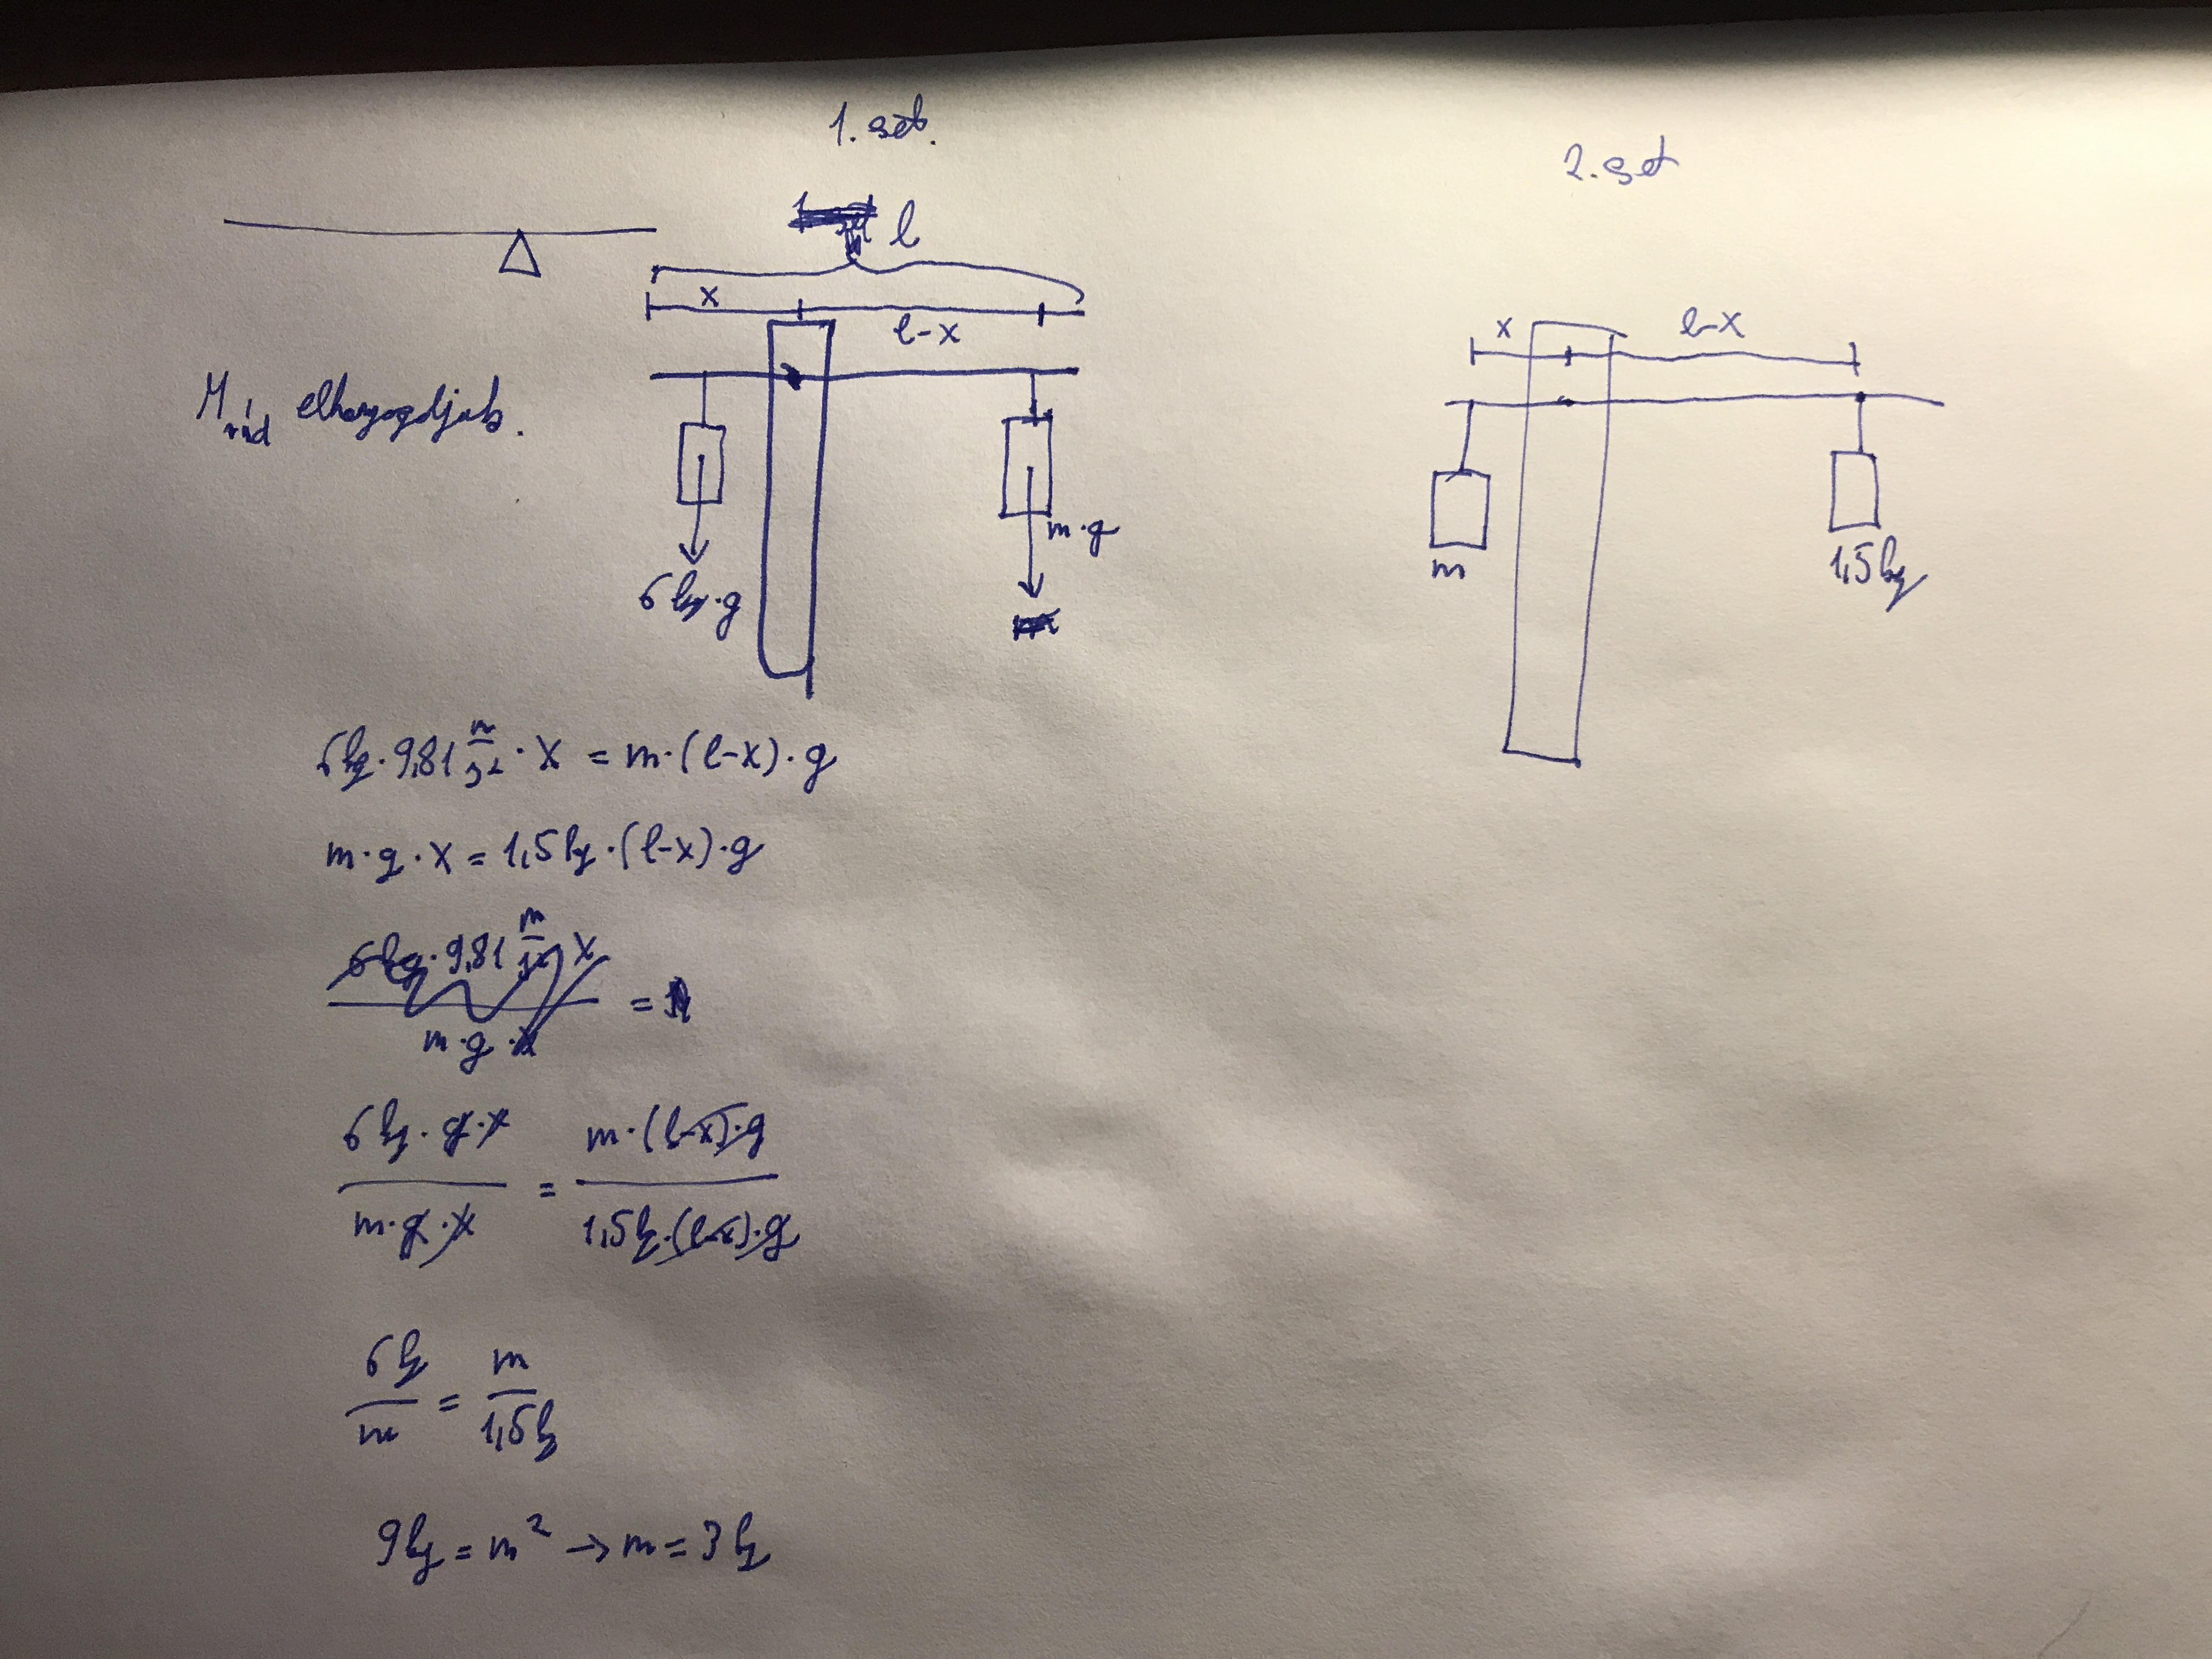 1. set.
2. set
l
x
l-x
x
l-x
M rúd elhanyagoljuk.
m·g
6 kg·g
m
1,5 kg
6kg·9,81 m/s²·x = m·(l-x)·g
m·g·x = 1,5kg·(l-x)·g
6kg·9,81 m/s² x
=
m·g
6 kg·g·x / m·g·x = m·(l-x)·g / 1,5kg·(l-x)·g
6 kg / m = m / 1,5 kg
9kg = m² → m = 3 kg